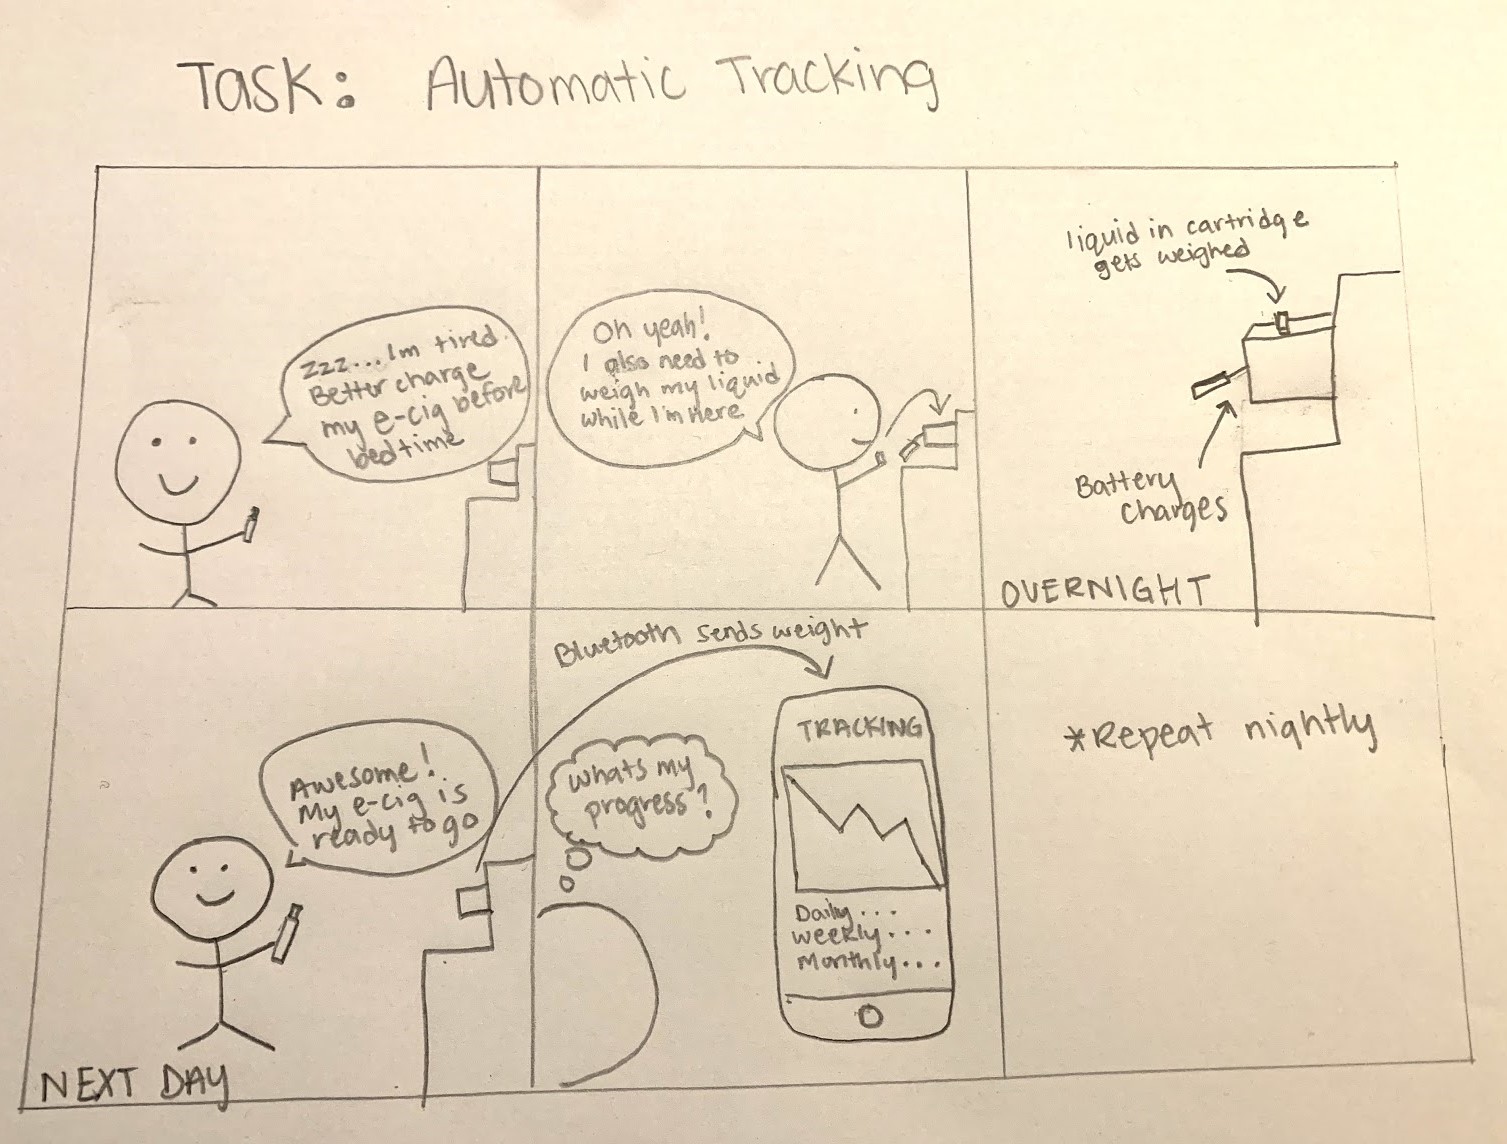 Task: Automatic Tracking
zzz... Im tired.
Better charge
my e-cig before
bedtime
Oh yeah!
I also need to
weigh my liquid
while I'm here
liquid in cartridge
gets weighed
Battery
charges
OVERNIGHT
Awesome!
My e-cig is
ready to go
NEXT DAY
Bluetooth sends weight
whats my
progress?
TRACKING
Daily...
weekly...
monthly...
*Repeat nightly